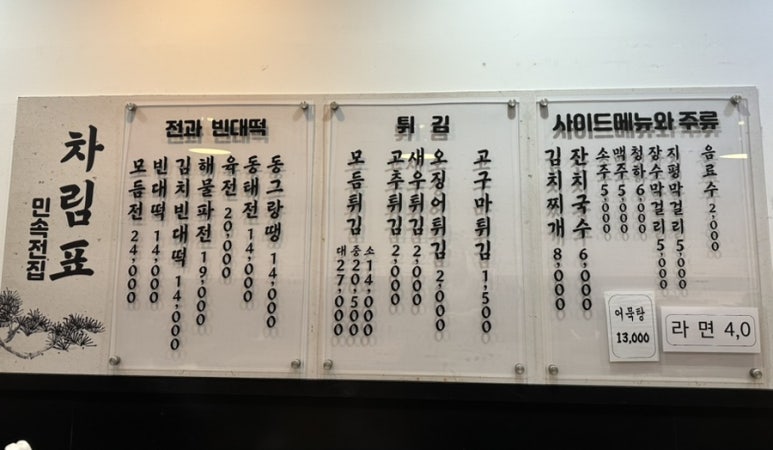 차림표
민속전집
전과 빈대떡
모듬전 24,000
빈대떡 14,000
김치빈대떡 14,000
해물파전 19,000
육전 20,000
동태전 14,000
동그랑땡 14,000
튀 김
모듬튀김
대 27,000
중 20,500
소 14,000
고추튀김 2,000
새우튀김 2,000
오징어튀김 2,000
고구마튀김 1,500
사이드메뉴와 주류
김치찌개 8,000
잔치국수 6,000
소주 5,000
맥주 5,000
청하 6,000
장수막걸리 5,000
지평막걸리 5,000
음료수 2,000
어묵탕
13,000
라 면 4,0